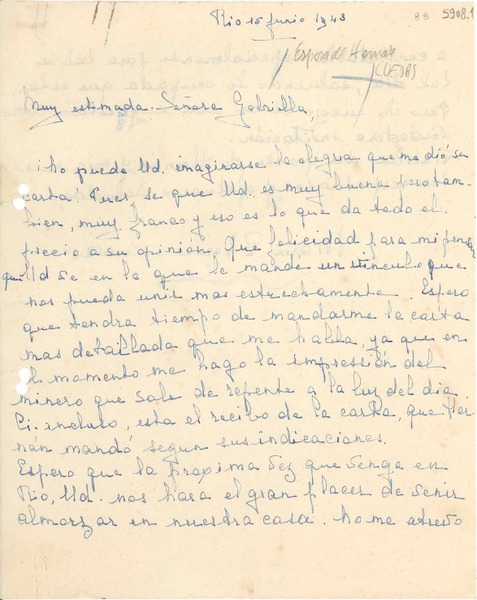 Rio 15 Junio 1943
88 5908.1
Esposa de Hernán
CUEVAS
Muy estimada Señora Gabriella,
¡ho puede Ud. imaginarse la alegria que me dió su
carta! Pues, se que Ud. es muy buena pero tam-
bien, muy franca y eso es lo que da todo el
precio a su opinión. Que felicidad para mi pensar
que Ud ve en lo que le mandé un vínculo que
nos pueda unir mas estrechamente. Espero
que tendra tiempo de mandarme la carta
mas detallada que me habla, ya que en
el momento me hago la impressión del
minero que sale de repente a la luz del dia.
Ci. incluso, esta el recibo de la carta, que Her-
nán mandó segun sus indicaciones.
Espero que la proxima vez que venga en
Rio, Ud. nos hara el gran placer de venir
almorzar en nuestra casa. ho me atrevo